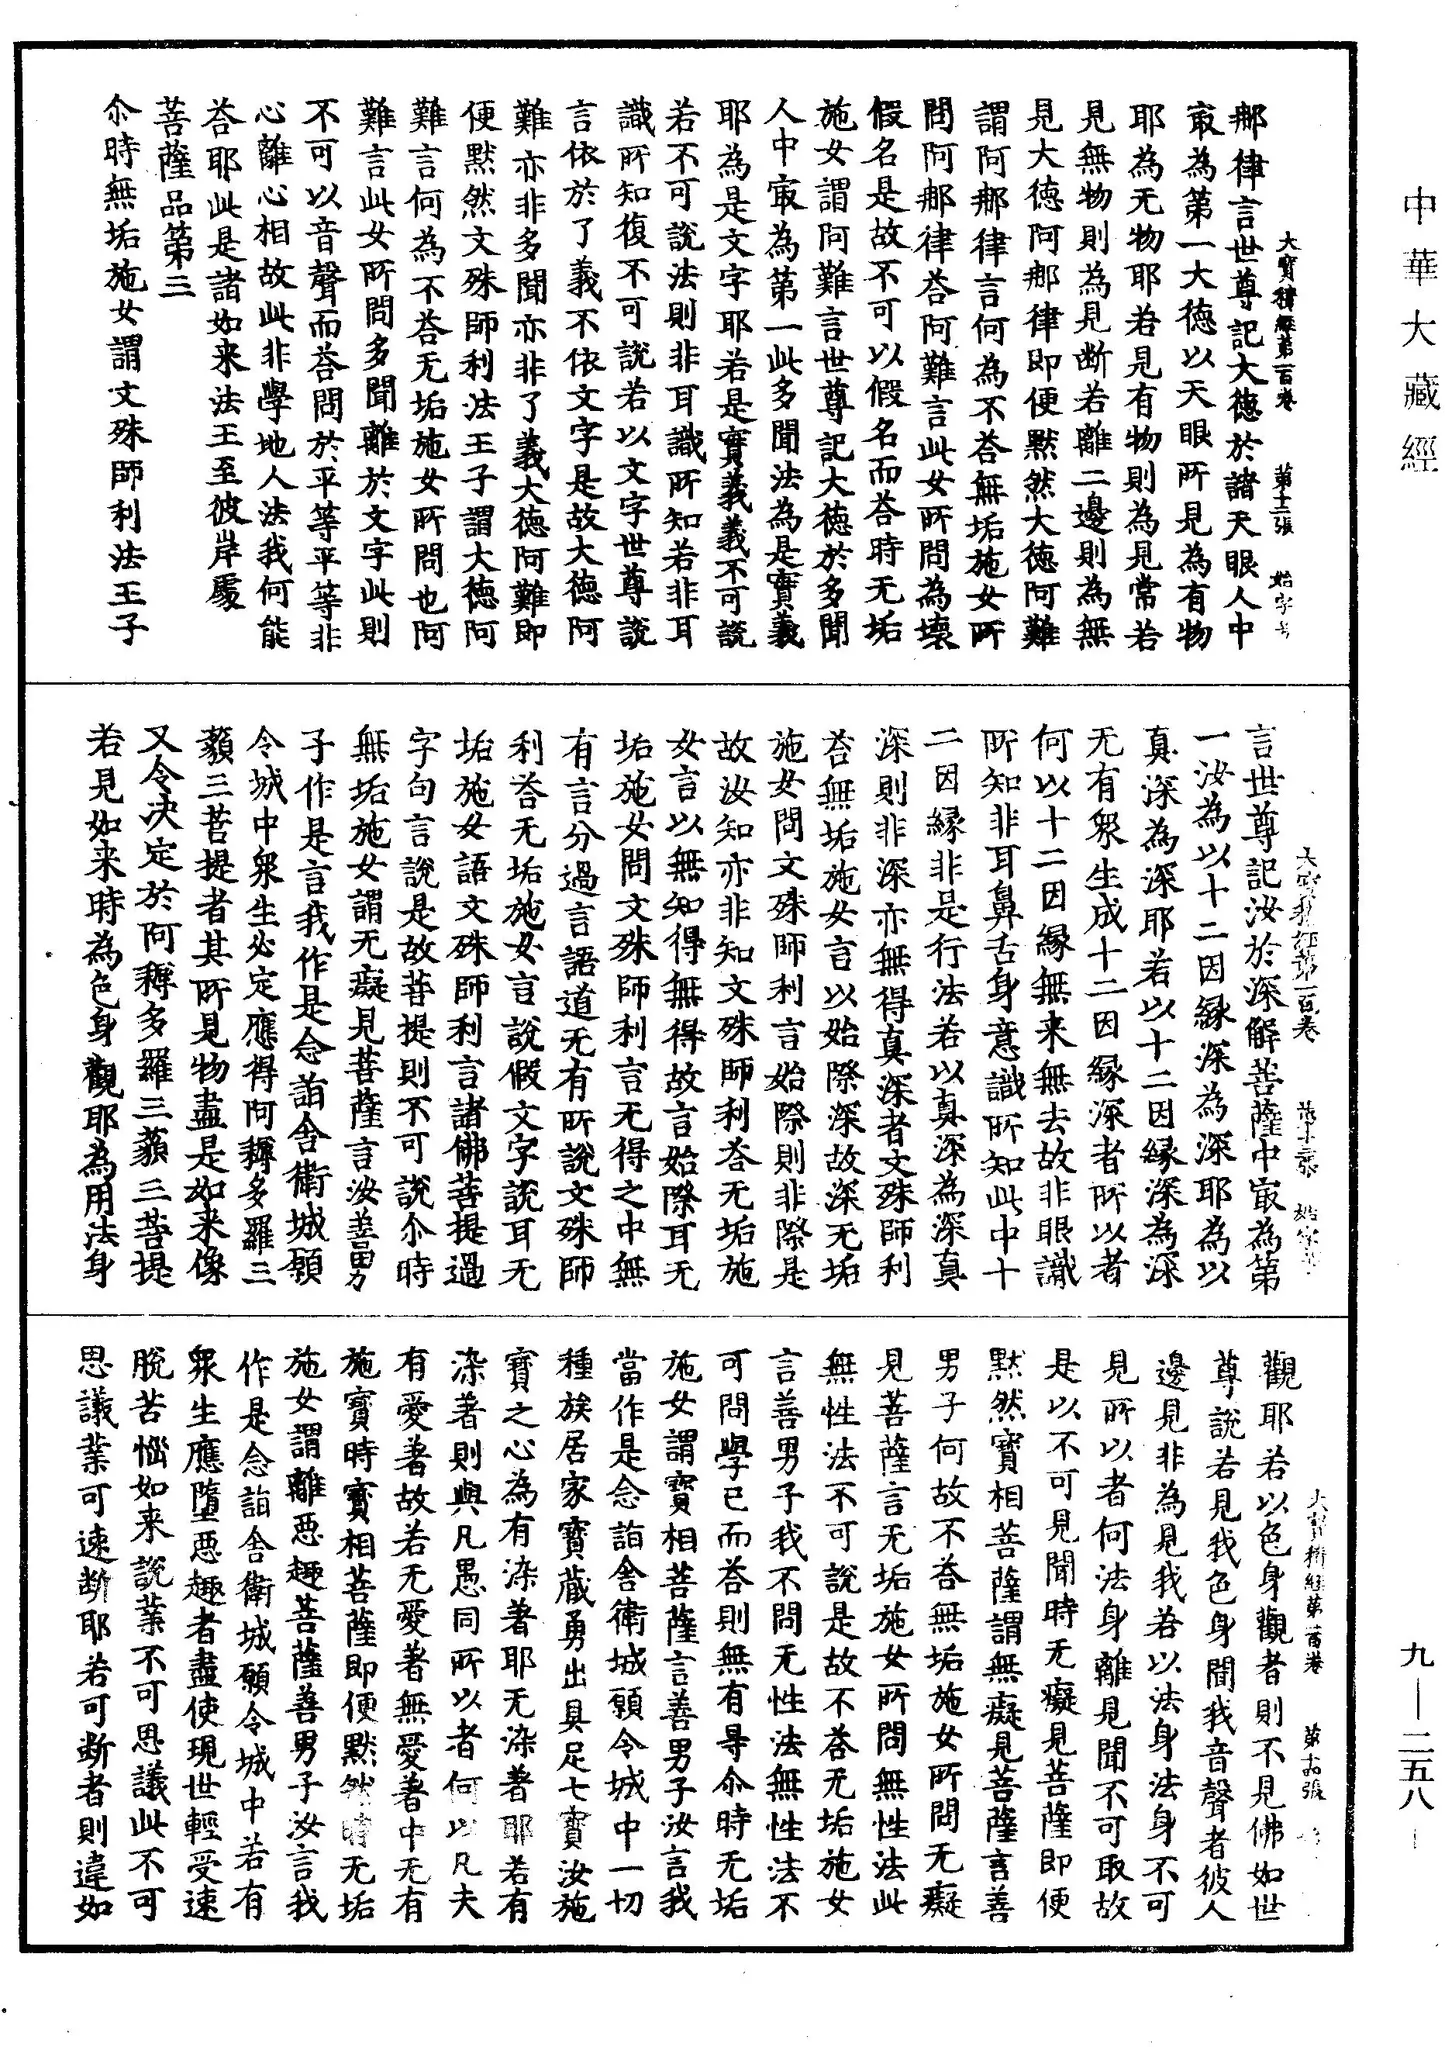 中華大藏經
大寶積經第一百卷 第十二張 始字号
那律言世尊記大德於諸天眼人中
㝡為第一大德以天眼所見為有物
耶為无物耶若見有物則為見常若
見無物則為見断若離二邊則為無
見大德阿那律即便默然大德阿難
謂阿那律言何為不荅無垢施女所
問阿那律荅阿難言此女所問為壞
假名是故不可以假名而荅時无垢
施女謂阿難言世尊記大德於多聞
人中㝡為第一此多聞法為是實義
耶為是文字耶若是實義義不可說
若不可說法則非耳識所知若非耳
識所知復不可說若以文字世尊說
言依於了義不依文字是故大德阿
難亦非多聞亦非了義大德阿難即
便默然文殊師利法王子謂大德阿
難言何為不荅无垢施女所問也阿
難言此女所問多聞離於文字此則
不可以音聲而荅問於平等平等非
心離心相故此非學地人法我何能
荅耶此是諸如来法王至彼岸處
菩薩品第三
尒時無垢施女謂文殊師利法王子
大寶積經第一百卷
言世尊記汝於深解菩薩中㝡為第
一汝為以十二因緣深為深耶為以
真深為深耶若以十二因緣深為深
无有衆生成十二因緣深者所以者
何以十二因緣無来無去故非眼識
所知非耳鼻舌身意識所知此中十
二因緣非是行法若以真深為深真
深則非深亦無得真深者文殊師利
荅無垢施女言以始際深故深无垢
施女問文殊師利言始際則非際是
故汝知亦非知文殊師利荅无垢施
女言以無知得無得故言始際耳无
垢施女問文殊師利言无得之中無
有言分過言語道无有所說文殊師
利荅无垢施女言說假文字說耳无
垢施女語文殊師利言諸佛菩提過
字句言說是故菩提則不可說尒時
無垢施女謂无癡見菩薩言汝善男
子作是言我作是念詣舍衛城願
令城中衆生必定應得阿耨多羅三
藐三菩提者其所見物盡是如来像
又令决定於阿耨多羅三藐三菩提
若見如来時為色身觀耶為用法身
大寶積經第一百卷 第十四張
觀耶若以色身觀者則不見佛如世
尊說若見我色身聞我音聲者彼人
邊見非為見我若以法身法身不可
見所以者何法身離見聞不可取故
是以不可見聞時无癡見菩薩即便
默然寶相菩薩謂無癡見菩薩言善
男子何故不荅無垢施女所問无癡
見菩薩言无垢施女所問無性法此
無性法不可說是故不荅无垢施女
言善男子我不問无性法無性法不
可問學已而荅則無有㝵尒時无垢
施女謂寶相菩薩言善男子汝言我
當作是念詣舍衛城願令城中一切
種族居家寶藏勇出具足七寶汝施
寶之心為有染著耶无染著耶若有
染著則與凡愚同所以者何以凡夫
有愛著故若无愛著無愛著中无有
施寶時寶相菩薩即便默然時无垢
施女謂離惡趣菩薩善男子汝言我
作是念詣舍衛城願令城中若有
衆生應墮惡趣者盡使現世輕受速
脫苦惱如来說業不可思議此不可
思議業可速断耶若可断者則違如
九—二五八